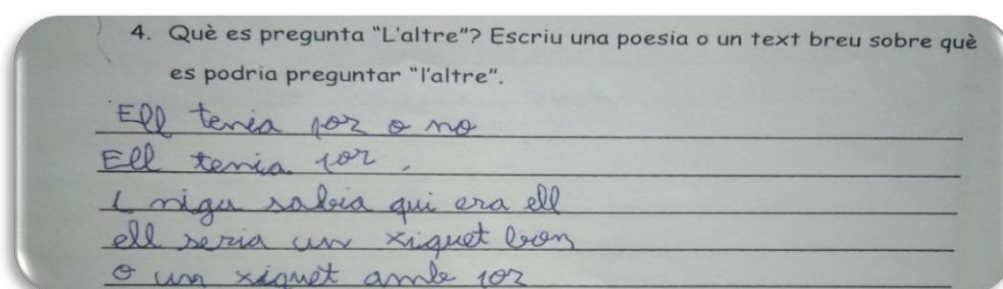 4. Què es pregunta "L'altre"? Escriu una poesia o un text breu sobre què
es podria preguntar "l'altre".
Ell tenia por o no
Ell tenia por,
i nigu sabia qui era ell
ell seria un xiquet bon
o un xiquet amb por